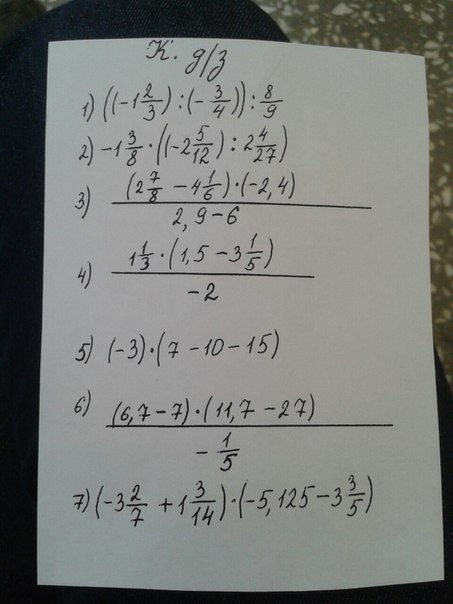 К. д/з
1) ((-1 2/3) : (- 3/4)) : 8/9
2) -1 3/8 · ((-2 5/12) : 2 4/27)
3) (2 7/8 - 4 1/6) · (-2,4) / 2,9 - 6
4) 1 1/3 · (1,5 - 3 1/5) / -2
5) (-3) · (7 - 10 - 15)
6) (6,7 - 7) · (11,7 - 27) / - 1/5
7) (-3 2/7 + 1 3/14) · (-5,125 - 3 3/5)